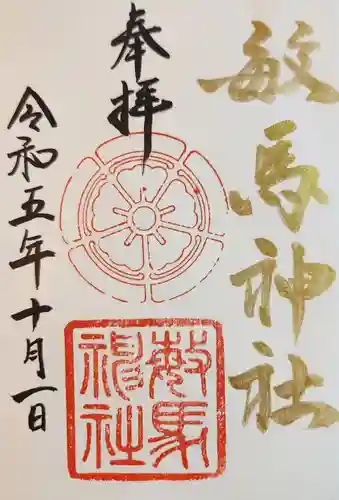 敏馬神社
奉拝
令和五年十月一日
敏馬
神社